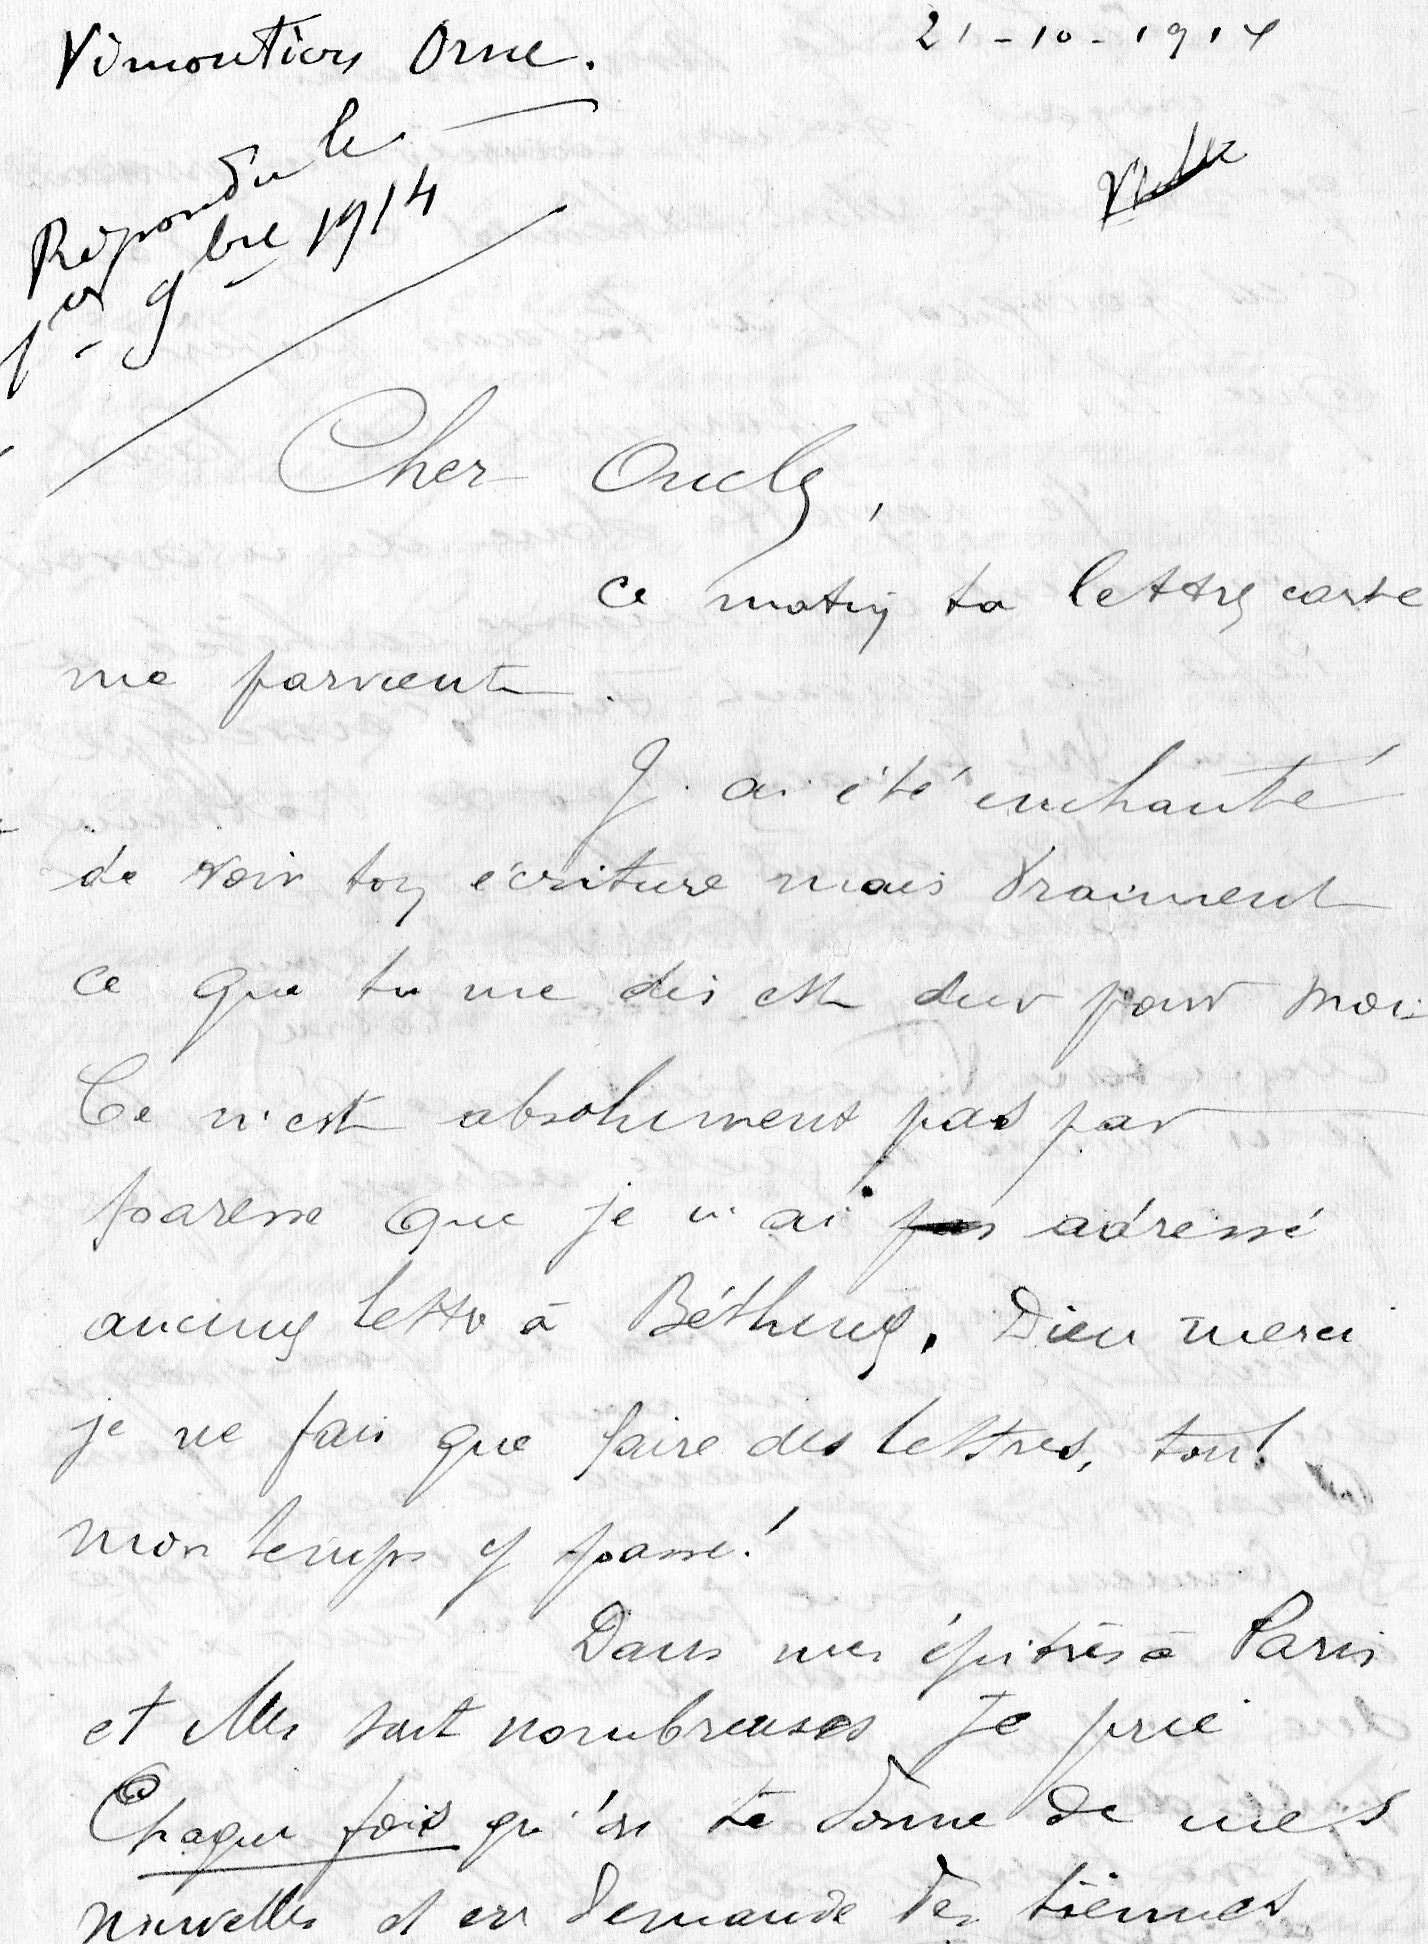 Vimoutiers Orne.
21-10-1914
Répondu le
1er 9bre 1914
Cher Oncle,
ce matin ta lettre carte
me parvient.
J'ai été enchanté
de voir ton écriture mais vraiment
ce que tu me dis est dur pour moi
Ce n'est absolument pas par
paresse que je n'ai pas adressé
aucune lettre à Béthune. Dieu merci
je ne fais que faire des lettres, tout
mon temps y passe!
Dans mes épitres à Paris
et elles sont nombreuses je prie
Chaque fois qu'on te donne de mes
nouvelles et en demande des tiennes